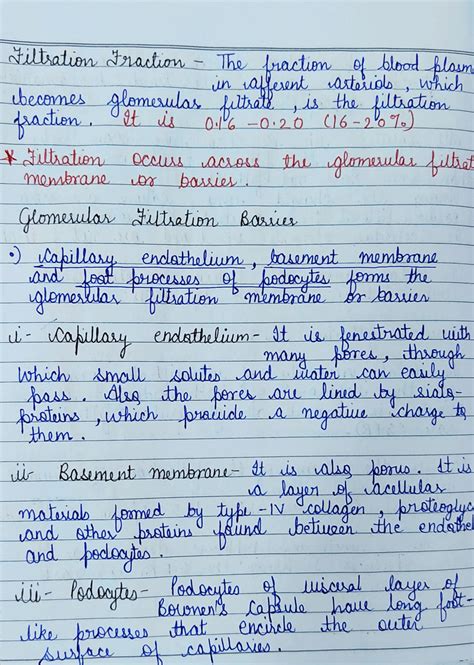 Filtration Fraction - The fraction of blood plasm
in afferent arteriols, which
becomes glomerular filtrate, is the filtration
fraction. It is 0.16 - 0.20 (16-20%)
* Filtration occurs across the glomerular filtrat
membrane or barrier.
Glomerular Filtration Barrier
•) Capillary endothelium, basement membrane
and foot processes of podocytes forms the
glomerular filtration membrane or barrier
i- Capillary endothelium - It is fenestrated with
many pores, through
which small solutes and water can easily
pass. Also the pores are lined by sialo-
proteins, which provide a negative charge to
them.
ii- Basement membrane - It is also porus. It is
a layer of acellular
materials formed by type-IV collagen, proteoglyc
and other proteins found between the endothel
and podocytes.
iii- Podocytes - Podocytes of visceral layer of
Bowmen's Capsule have long foot-
like processes that encircle the outer
surface of capillaries.